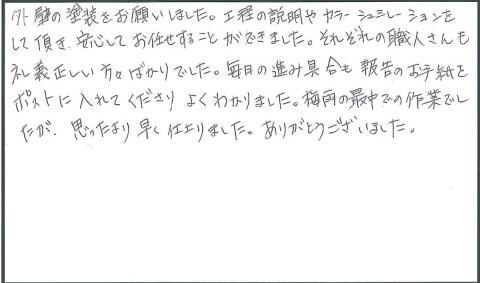 外壁の塗装をお願いしました。工程の説明やカラーシュミレーションを
して頂き、安心してお任せすることができました。それぞれの職人さんも
礼義正しい方々ばかりでした。毎日の進み具合も報告のお手紙を
ポストに入れてくださりよくわかりました。梅雨の最中での作業でし
たが、思ったより早く仕上りました。ありがとうございました。